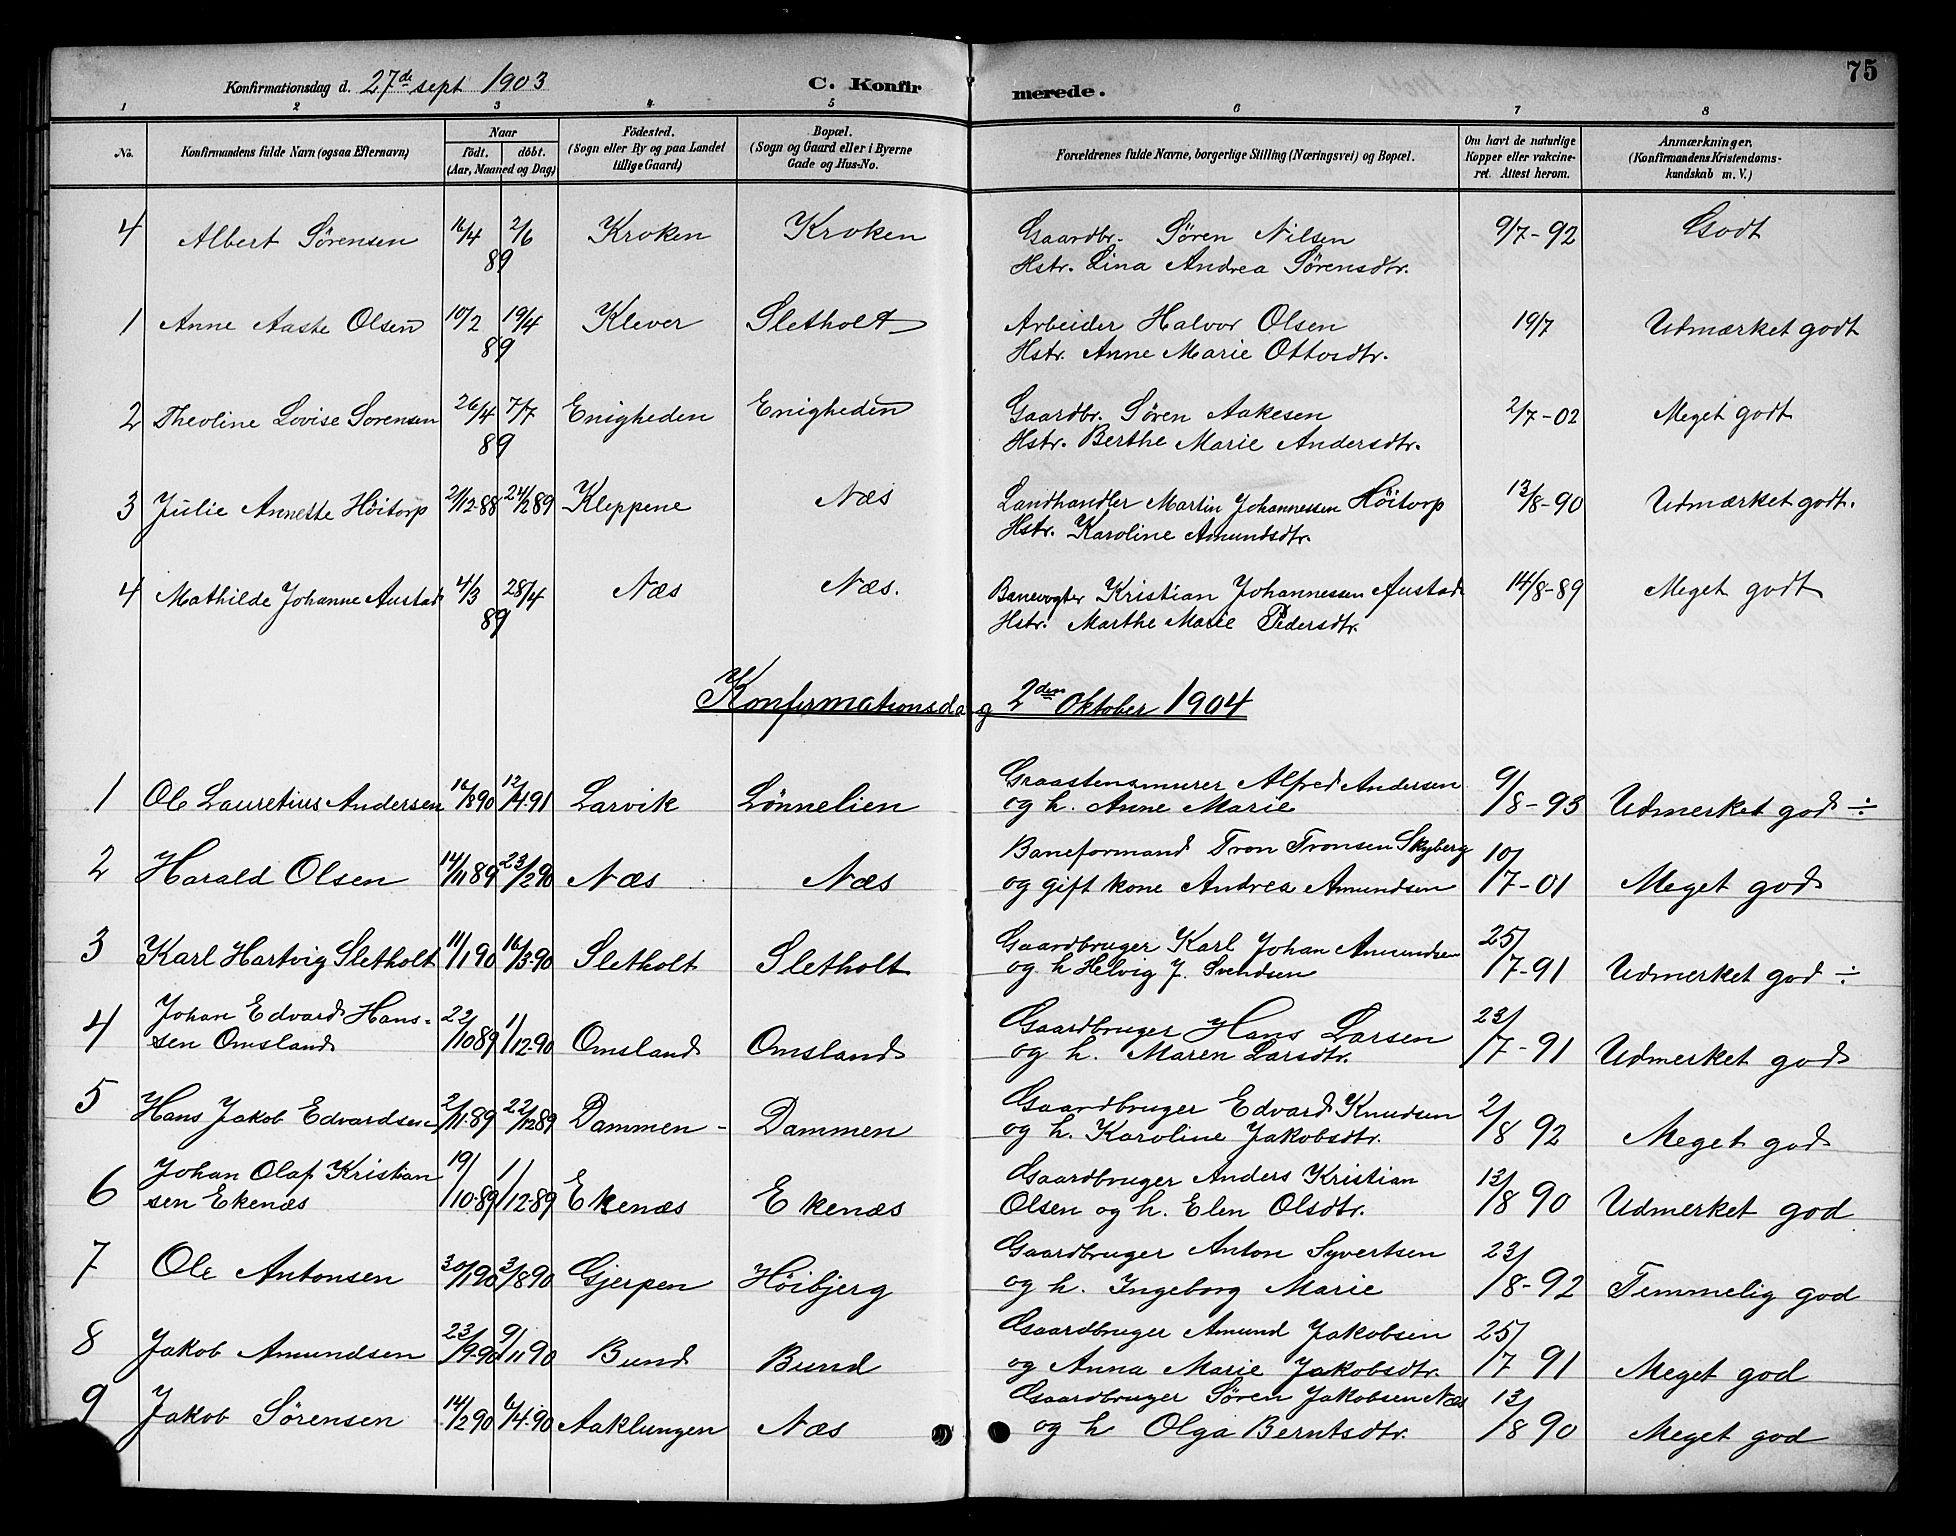 75
Konfirmationsdag d. 27de sept 1903 C. Konfirmerede.
1 2 3 4 5 6 7 8
No. Konfirmandens fulde Navn (ogsaa Efternavn) Naar födt. döbt. (Aar, Maaned og Dag) Födested. (Sogn eller By og paa Landet tillige Gaard) Bopæl. (Sogn og Gaard eller i Byerne Gade og Hus-No. Forældrenes fulde Navne, borgerlige Stilling (Næringsvei) og Bopæl. Om havt de naturlige Kopper eller vakcineret. Attest herom. Anmærkninger. (Konfirmandens Kristendomskundskab m. V.)
4 Albert Sörensen 16/4 2/6 Kroken Kroken Gaardbr. Sören Nilsen 9/7-92 Godt
89 Hstr. Lina Andrea Sörensdtr.
1 Anne Aaste Olsen 10/2 19/4 Klever Sletholt Arbeider Halvor Olsen 19/7 Udmærket godt
89 Hstr. Anne Marie Ottosdtr.
2 Theoline Lovise Sorensen 26/4 7/7 Enigheden Enigheden Gaardbr. Sören Aakesen 2/7-02 Meget godt
89 Hstr. Berthe Marie Andersdtr.
3 Julie Annette Höitorp 21/12-88 24/2 89 Kleppene Næs Landhandler Martin Johannessen Höitorp 13/8-90 Udmærket godt.
Hstr. Karoline Amundsdtr.
4 Mathilde Johanne Austad 4/3 28/4 Næs Næs. Banevogter Kristian Johannessen Austad 14/8-89 Meget godt
89 Hstr. Marthe Marie Pedersdtr.
Konfirmationsdag 2den Oktober 1904
1 Ole Lauretius Andersen 16/8 90 12/4 91 Larvik Lönnelien Graastensmurer Alfred Andersen 9/8-93 Udmerket god ÷
og h. Anne Marie
2 Harald Olsen 14/11 89 23/2 90 Næs Næs Baneformand Tron Tronsen Skyberg 10/7-01 Meget god
og gift kone Andrea Amundsen
3 Karl Hartvig Sletholt 11/1 90 16/3-90 Sletholt Sletholt Gaardbruger Karl Johan Amundsen 25/7-91 Udmerket god ÷
og h Helvig J. Svendsen
4 Johan Edvard Hans- 22/10 89 1/12-90 Omsland Omsland Gaardbruger Hans Larsen 23/7-91 Udmerket god
sen Omsland og h. Maren Larsdtr.
5 Hans Jakob Edvardsen 2/11-89 22/12 89 Dammen - Dammen Gaardbruger Edvard Knudsen 2/8 92 Meget god
og h. Karoline Jakobsdtr.
6 Johan Olaf Kristian 19/10-89 1/12-89 Ekenæs Ekenæs Gaardbruger Anders Kristian 13/8 90 Udmerket god
sen Ekenæs Olsen og h. Elen Olsdtr.
7 Ole Antonsen 30/1 90 3/8 90 Gjerpen Höibjerg Gaardbruger Anton Syvertsen 23/8-92 Temmelig god
og h. Ingeborg Marie
8 Jakob Amundsen 23/9-90 9/11 90 Bund Bund Gaardbruger Amund Jakobsen 25/7 91 Meget god
og Anna Marie Jakobsdtr.
9 Jakob Sörensen 14/2 90 6/4-90 Aaklungen Næs Gaardbruger Sören Jakobsen Næs 13/8 90 Meget god
og h Olga Berntsdtr.